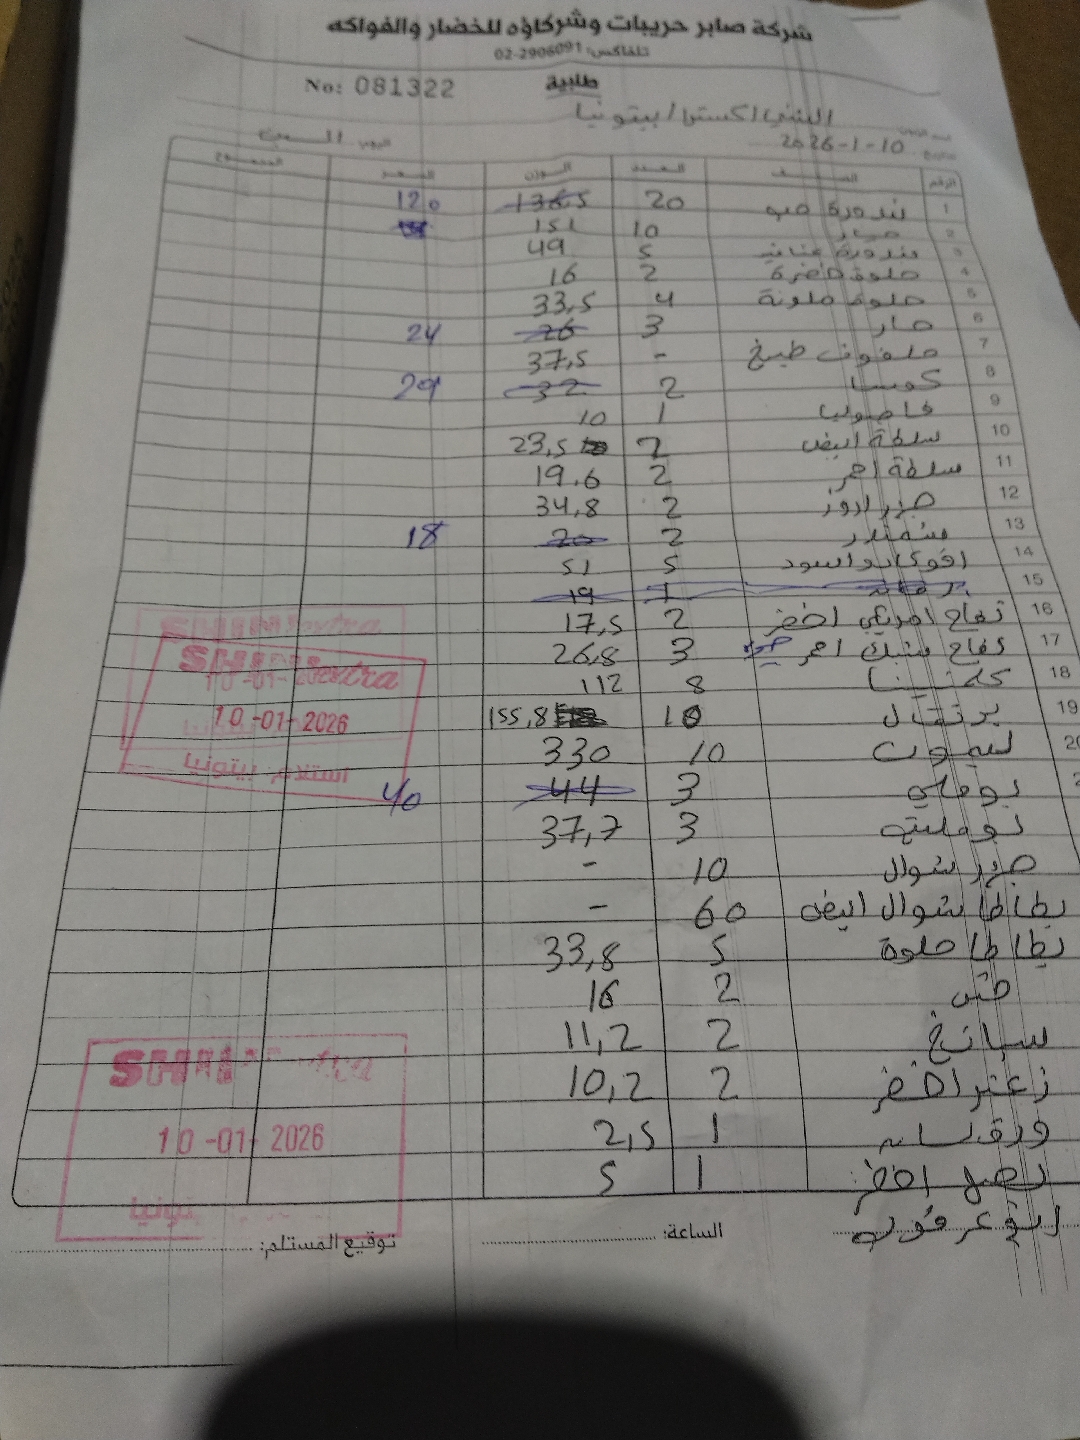 شركة صابر حريبات وشركاؤه للخضار والفواكه
تلفاكس: 02-2906091
طلبية
No: 081322
الشني اكسترا / بيتونيا
اليوم السبت
2026-1-10
الرقم الصنف العدد الوزن السعر المجموع
1 بندورة حب 20 136,5 120
2 خيار 10 151
3 بندورة عناقيد 5 49
4 حلوة خضرة 2 16
5 حلوة ملونة 4 33,5
6 حار 3 26 24
7 ملفوف طبخ - 37,5
8 كوسا 2 32 29
9 فاصوليا 1 10
10 سلطة ابيض 2 23,5
11 سلطة احمر 2 19.6
12 جزر اروز 2 34,8
13 شمندر 2 20 18
14 افوكادو اسود 5 51
15 1 19
16 تفاح امريكي اخضر 2 17,5
17 تفاح احمر 3 26,8
18 كلمنتينا 8 112
19 برتقال 10 155,8
20 ليمون 10 330
بوملي 3 44 40
بومليت 3 37,7
جزر شوال 10 -
بطاطا شوال ابيض 60 -
بطاطا حلوة 5 33,8
خس 2 16
سبانخ 2 11,2
زعتر اخضر 2 10,2
ورق لسانه 1 2,5
بصل اخضر 1 5
الساعة: توقيع المستلم:
SHINI extra
10-01-2026
استلام بيتونيا
SHINI extra
10-01-2026
بيتونيا